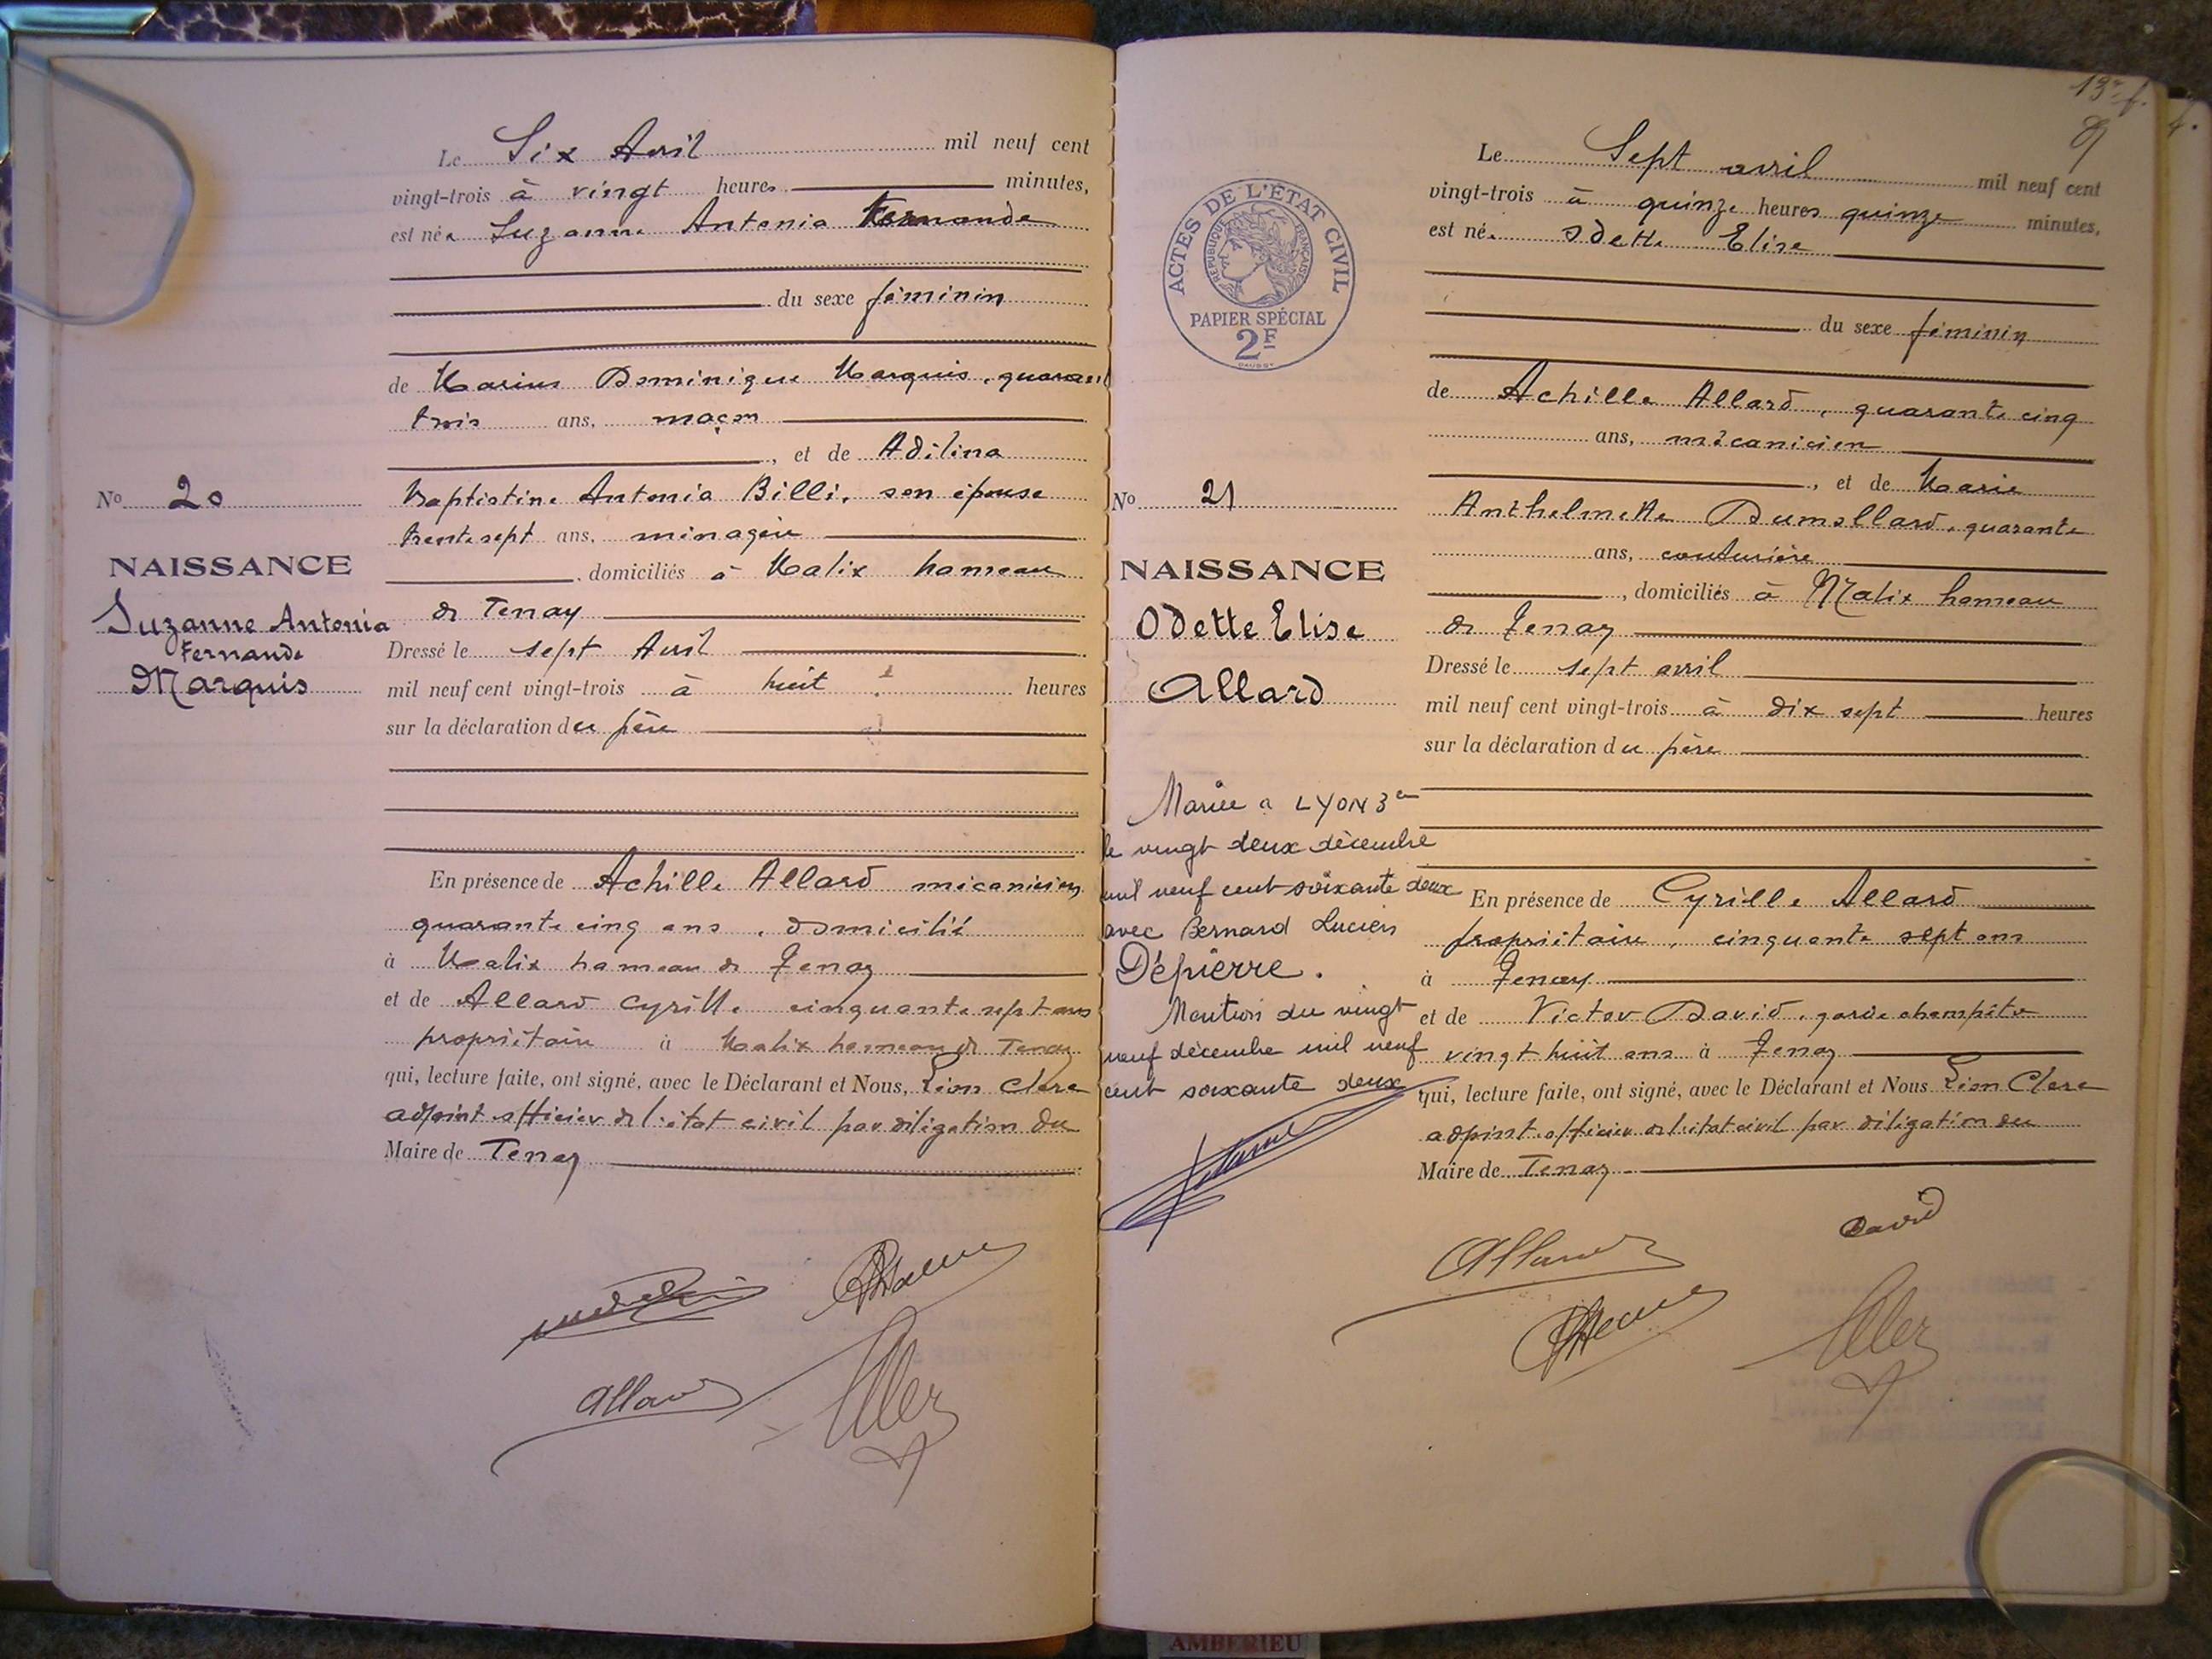 Le Six Avril mil neuf cent
vingt-trois à vingt heures minutes,
est née Suzanne Antonia Fernande
du sexe féminin
de Marius Dominique Marquis, quarant
trois ans, maçon
, et de Adélina
Baptistine Antonia Billi, son épouse
trente sept ans, ménagère
, domiciliés à Malix hameau
de Tenay
Dressé le sept Avril
mil neuf cent vingt-trois à huit heures
sur la déclaration du père
En présence de Achille Allard mécanicien
quarante cinq ans, domicilié
à Malix hameau de Tenay
et de Allard Cyrille cinquante sept ans
propriétaire à Malix hameau de Tenay
qui, lecture faite, ont signé, avec le Déclarant et Nous, Léon Clerc
adjoint officier de l'état civil par délégation du
Maire de Tenay
No 20
NAISSANCE
Suzanne Antonia
Fernande
Marquis
Allard
13e f.
9
ACTES DE L'ÉTAT CIVIL
RÉPUBLIQUE FRANÇAISE
PAPIER SPÉCIAL
2F
No 21
NAISSANCE
Odette Elise
Allard
Mariée a LYON 3e
le vingt deux décembre
mil neuf cent soixante deux
avec Bernard Lucien
Dépierre.
Mention du vingt
neuf décembre mil neuf
cent soixante deux
Le Sept avril mil neuf cent
vingt-trois à quinze heures quinze minutes,
est née Odette Elise
du sexe féminin
de Achille Allard, quarante cinq
ans, mécanicien
, et de Marie
Anthelmette Dumollard, quarante
ans, couturière
, domiciliés à Malix hameau
de Tenay
Dressé le sept avril
mil neuf cent vingt-trois à dix sept heures
sur la déclaration du père
En présence de Cyrille Allard
propriétaire, cinquante sept ans
à Tenay
et de Victor David, garde champêtre
vingt huit ans à Tenay
qui, lecture faite, ont signé, avec le Déclarant et Nous Léon Clerc
adjoint officier de l'état civil par délégation du
Maire de Tenay
David
Allard
AMBERIEU